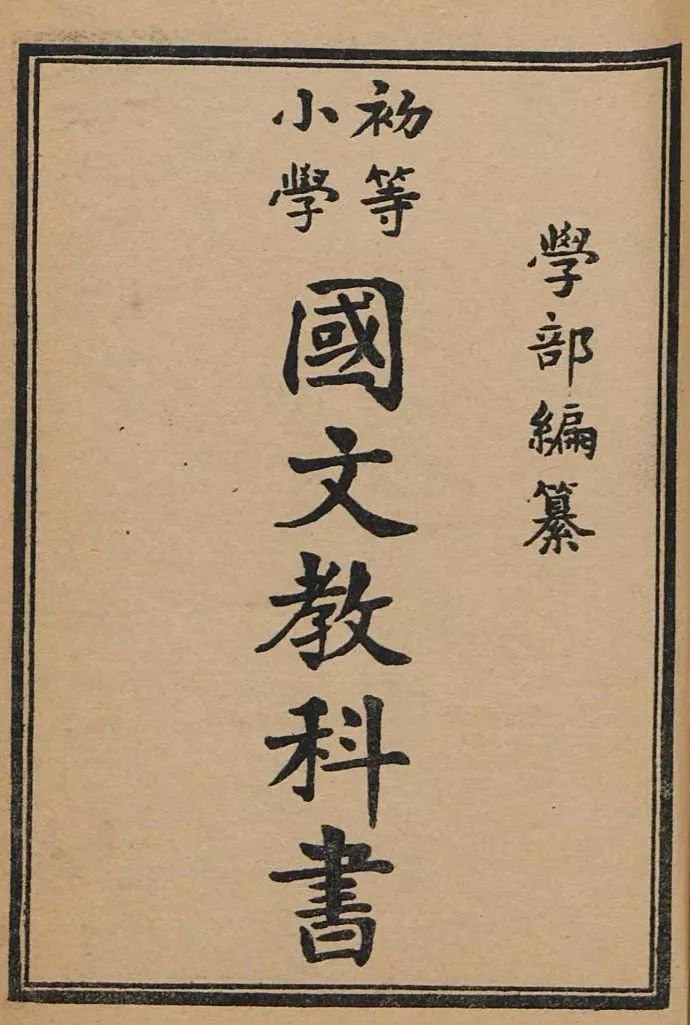 學部編纂
初等
小學
國文教科書